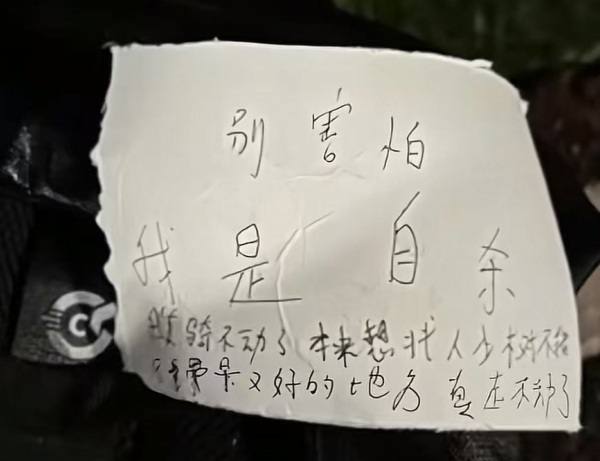 别害怕
我是自杀
骑不动了 本来想找人少树不
果又好的地方 真走不动了
C